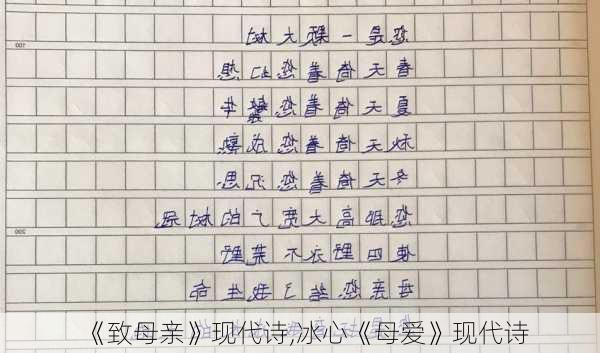 您是一棵大树
100
春天倚着您幻想
夏天倚着您繁
秋天倚着您成熟
冬天倚着您沉思
您那高大宽广的树冠
200
使四野永不荒野
母亲您给了我生命
《致母亲》现代诗,冰心《母爱》现代诗